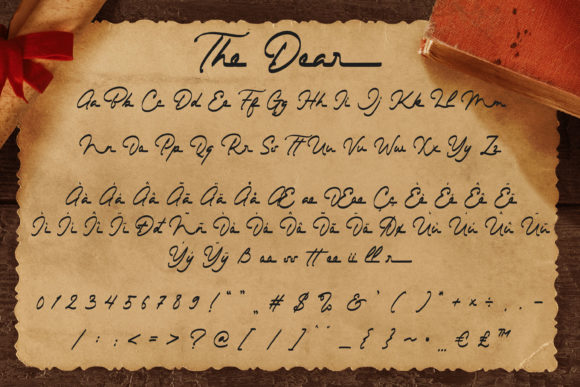 The Dear
Aa Bb Cc Dd Ee Ff Gg Hh Ii Jj Kk Ll Mm
Nn Oo Pp Qq Rr Ss Tt Uu Vv Ww Xx Yy Zz
Àà Áá Ââ Ãã Ää Åå Æ æ Œœ Çç Èè Éé Êê Ëë
Ìì Íí Îî Ïï Ðð Ññ Òò Óó Ôô Õõ Öö Øø Ùù Úú Ûû Üü
Ýý Ÿÿ ß aa ss tt ee ii ll r
0 1 2 3 4 5 6 7 8 9 ! “ ” „ # $ % & ' ( ) * + × ÷ , . -
/ : ; < = > ? @ [ / ] ¨ _ { } ~ • … € £ ™